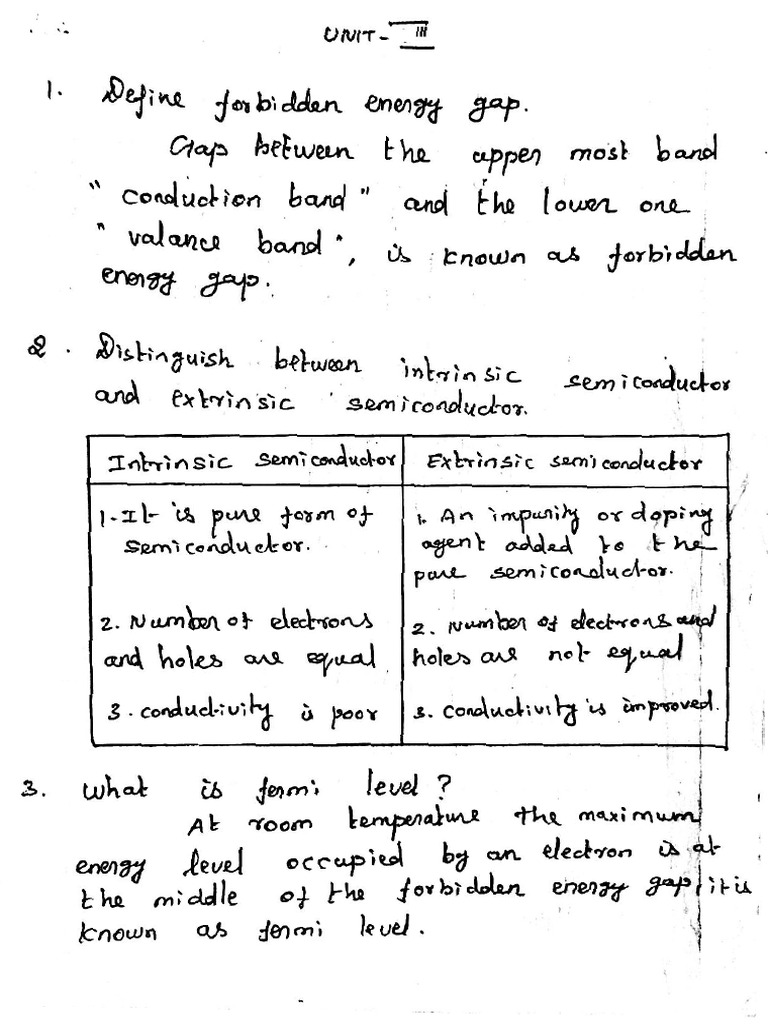 UNIT - III
1. Define forbidden energy gap.
Gap between the upper most band
"conduction band" and the lower one
"valance band", is known as forbidden
energy gap.
2. Distinguish between intrinsic semiconductor
and extrinsic semiconductor.
Intrinsic semiconductor
Extrinsic semiconductor
1. It is pure form of
semiconductor.
1. An impurity or doping
agent added to the
pure semiconductor.
2. Number of electrons
and holes are equal
2. Number of electrons and
holes are not equal
3. conductivity is poor
3. conductivity is improved.
3. What is fermi level?
At room temperature the maximum
energy level occupied by an electron is at
the middle of the forbidden energy gap, it is
known as fermi level.